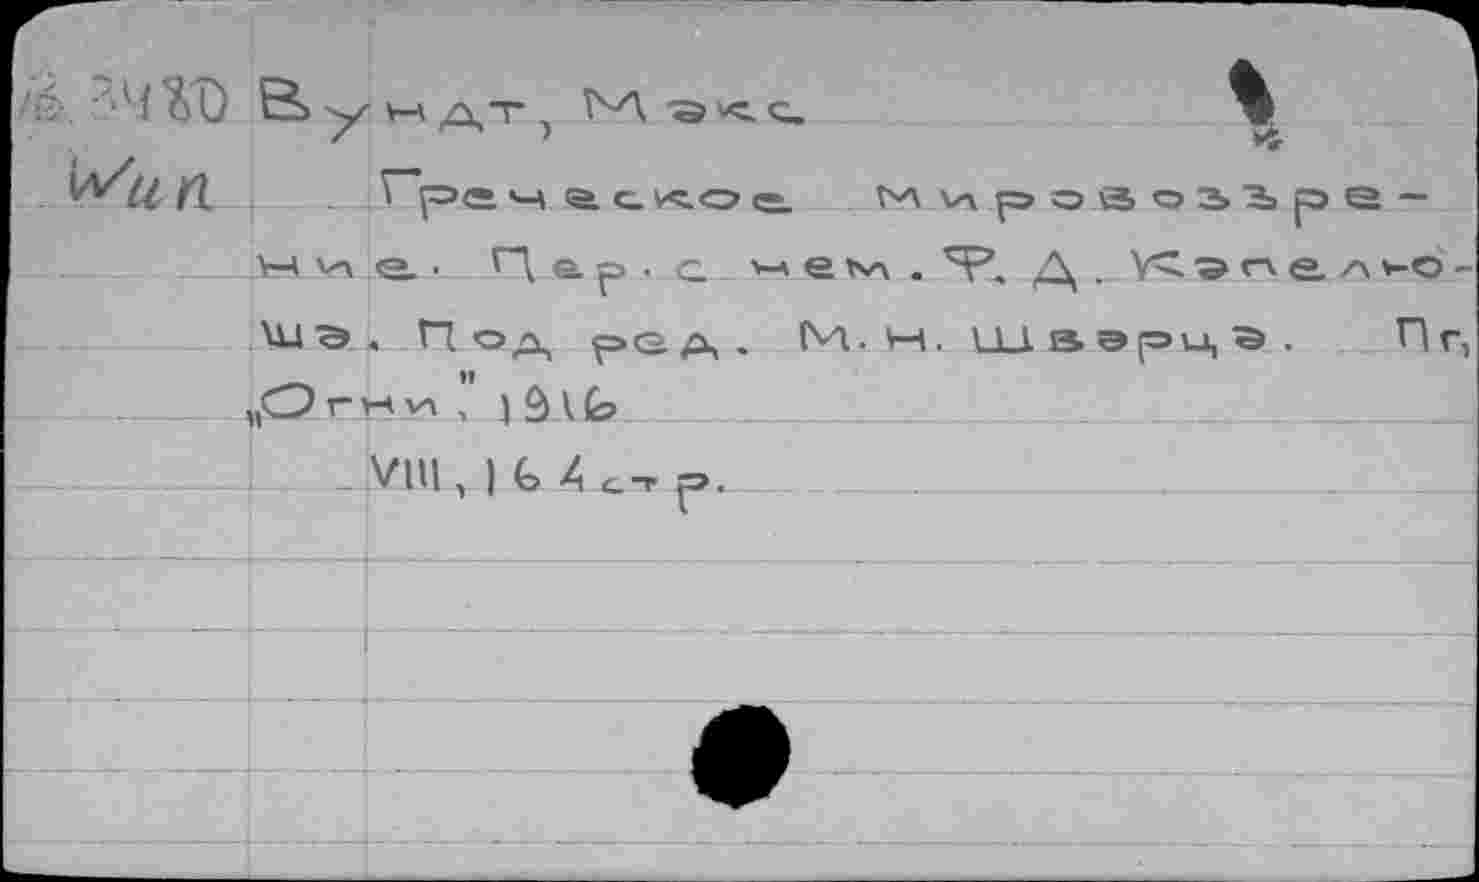 Вундт, Макс.
Wun Греческое мировоззре-
ние. Пер. с нем. Ф. Д. Капелю-
ша. Под ред. М. Н. Шварца. Пг,
„Огни", 1916
VIII, 164 стр.